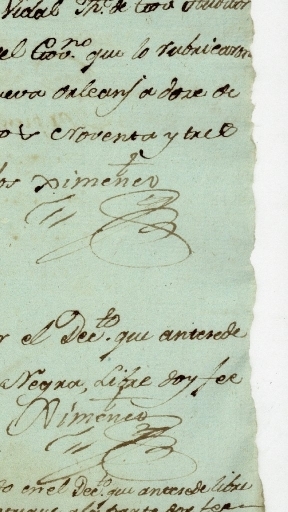 Vidal Th.e de Gov.
el Gov.no que lo rubricaron
ueva Orleans a doze de
Noventa y tres
los Ximenes
r el Dec.to que antecede
a Negra, Libre doy fee
Ximenes
to en el Dec.to que antecede libre
doy fee